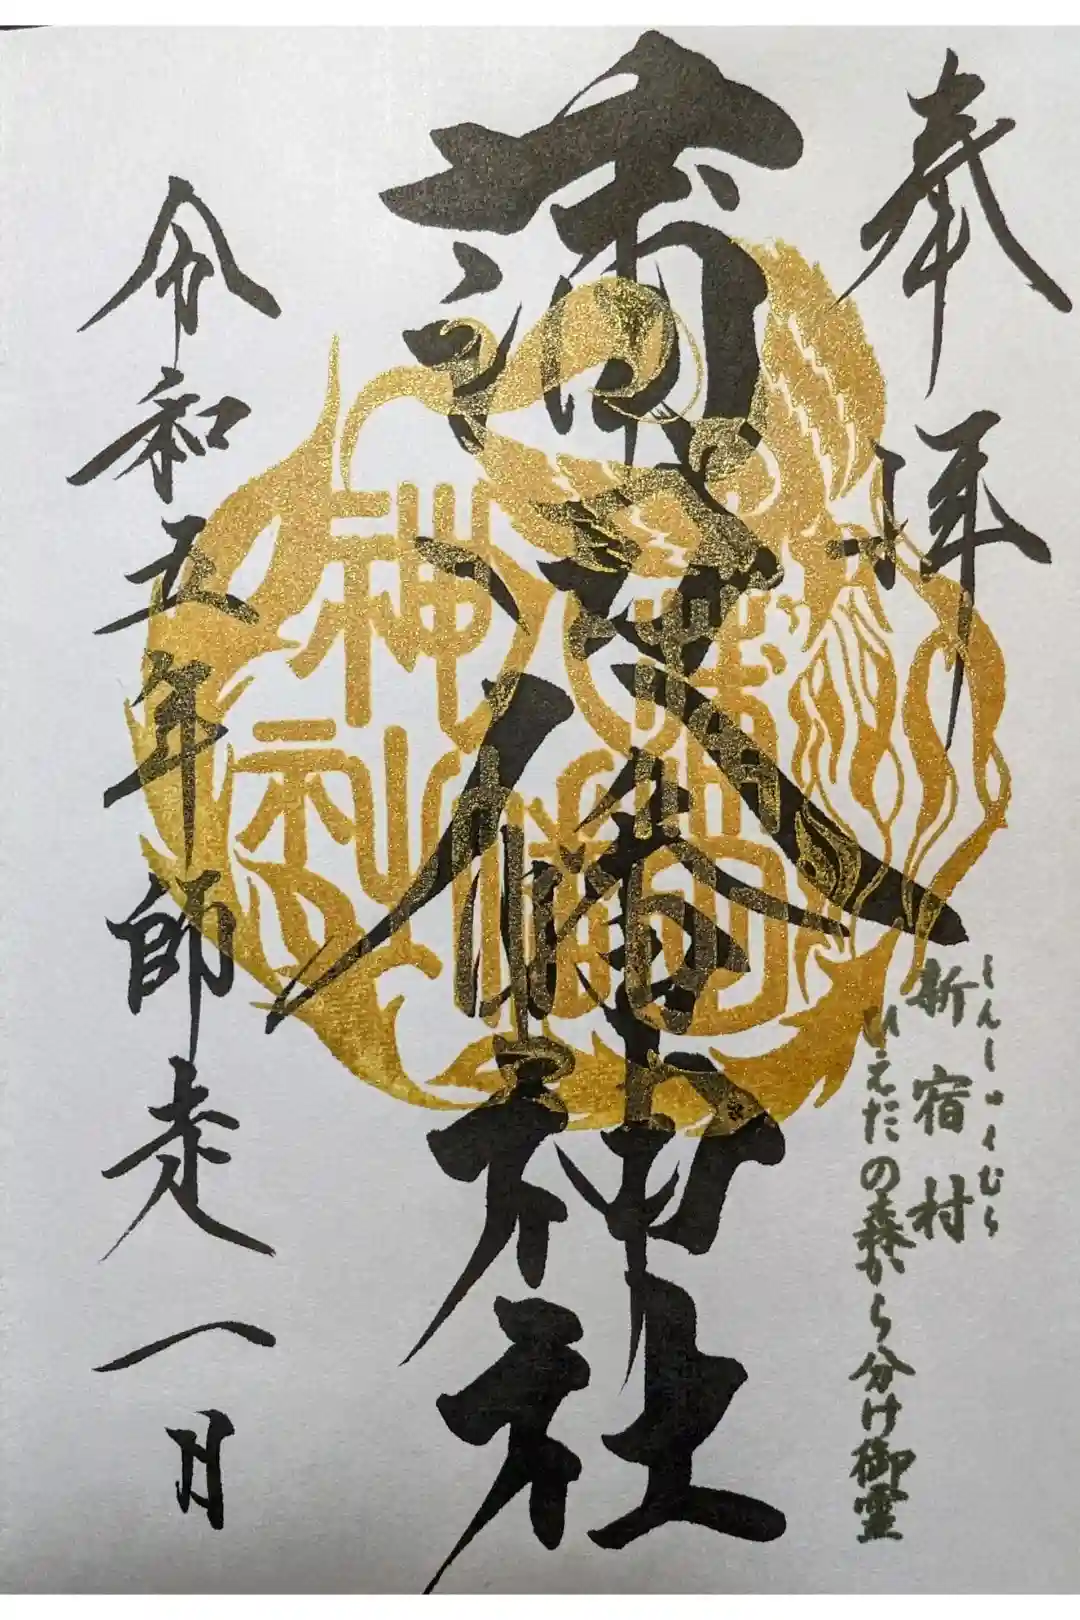 奉拝
しんしゅくむら
新宿村
ひえだの森から分け御霊
蒲田八幡神社
神社
令和五年師走一日